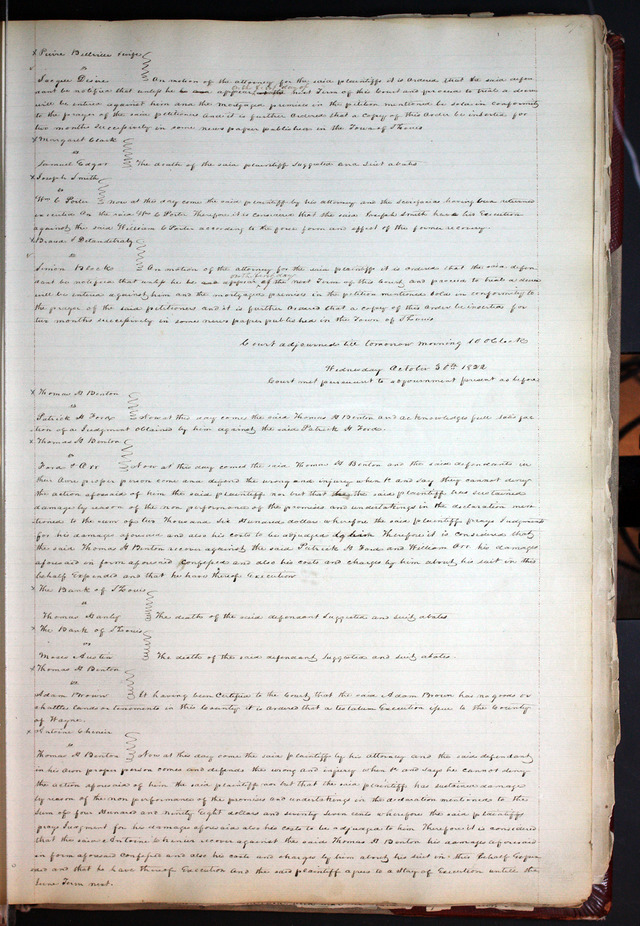 x Pierre Billville Senepe
vs
Jacques Dione On motion of the attorney for the said plaintiffs it is ordered that the said defen
dant be notified that unless he appear on the first day of next Term of this Court and proceed to trial a decree
will be entered against him and the mortgaged premises in the petition mentioned be sold in conformity
to the prayer of the said petitioners and it is further ordered that a copy of this order be inserted for
two months successively in some news paper published in the Town of St Louis
x Margaret Clark
vs
Samuel Edgar The death of the said plaintiff Suggested and Suit abates
x Joseph Smith
vs
Wm C Porter Now at this day come the said plaintiff by his attorney and the Scirefacias having been returned
execution On the said Wm C Porter Therefore it is considered that the said Joseph Smith have his Execution
against the said William C Porter according to the force form and effect of the former recovery.
x Braud & Detandebratz
vs
Simon Block On motion of the attorney for the said plaintiffs it is ordered that the said defen
dant be notified that unless he be and appear on the first day of the next Term of this Court and proceed to trial a decree
will be entered against him and the mortgages premises in the petition mentioned Sold in conformity to
the prayer of the said petitioners and it is further Ordered that a copy of this Order be inserted for
two months successively in some news paper published in the Town of St Louis
Court adjourned till tomorrow morning 10 OClock
Wednesday October 30th 1822
Court met pursuant to adjournment present as before
x Thomas H Benton
vs
Patrick H Ford Now at this day comes the said Thomas H Benton and acknowledges full satisfac
tion of a Judgment obtained by him against the said Patrick H Ford.
x Thomas H Benton
vs
Ford & Orr Now at this day comes the said Thomas H Benton and the said defendants in
their Own proper person come and defend the wrong and injury when &c and say they cannot deny
the action aforesaid of him the said plaintiff nor but that the said plaintiff has sustained
damages by reason of the non performance of the promises and undertakings in the declaration men
tioned to the sum of two Thousand Six Hundred dollars wherefore the said plaintiff prays Judgment
for his damages aforesaid and also his costs to be adjudged to him Therefore it is considered that
the said Thomas H Benton recover against the said Patrick H Ford and William Orr his damages
aforesaid in form aforesaid Confessed and also his costs and charges by him about his suit in this
behalf Expended and that he have thereof Execution
x The Bank of St Louis
vs
Thomas Hanly The deaths of the said defendant Suggested and suit abates
x The Bank of St Louis
vs
Moses Austin The deaths of the said defendant Suggested and suit abates.
x Thomas H Benton
vs
Adam Brown It having been Certified to the Court that the said Adam Brown has no goods or
chattles lands or tenements in this County it is ordered that a testatum Execution issue to the County
of Wayne.
x Antoine Chenie
vs
Thomas H Benton Now at this day come the said plaintiff by his attorney and the said defendant
in his own proper person comes and defends the wrong and injury when &c and says he cannot deny
the action aforesaid of him the said plaintiff nor but that the said plaintiff has sustained damages
by reason of the non performance of the promises and undertakings in the declaration mentioned to the
sum of four Hundred and ninety Eight dollars and seventy Seven cents wherefore the said plaintiff
prays Judgment for his damages aforesaid also his costs to be adjudged to him Therefore it is considered
that the said Antoine Chenie recover against the said Thomas H Benton his damages aforesaid
in form aforesaid Confessed and also his costs and charges by him about his suit in this behalf Expen
ded and that he have thereof Execution and the said plaintiff agrees to a Stay of Execution untill the
June Term next.